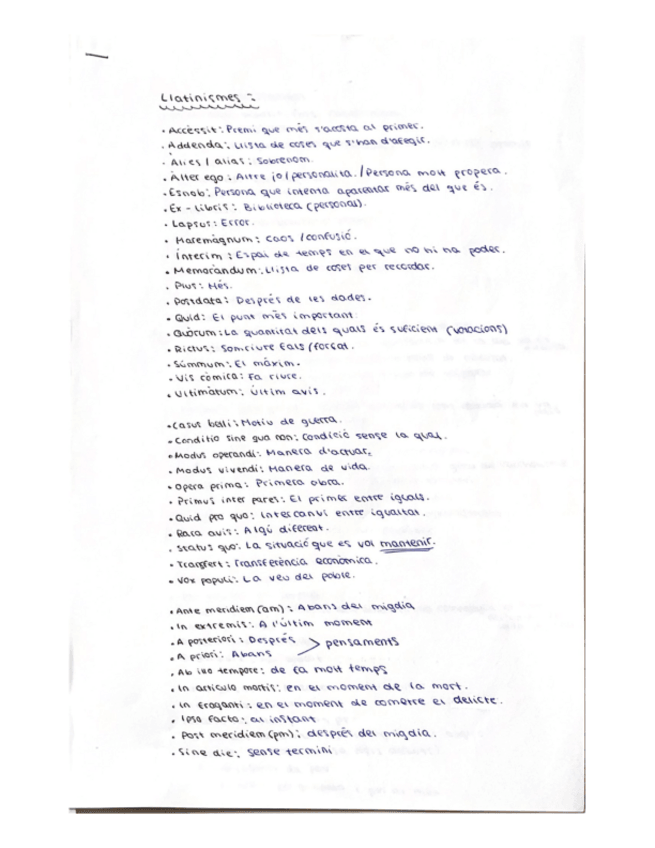 Llatinismes:
• Accèssit: Premi que més s'acosta al primer.
• Addenda: Llista de coses que s'han d'afegir.
• Àlies / alias: Sobrenom.
• Àlter ego: Altre jo/personalitat. /Persona molt propera.
• Esnob: Persona que intenta aparentar més del que és.
• Ex-libris: Biblioteca (personal).
• Lapsus: Error.
• Maremàgnum: Caos /confusió.
• Ínterim: Espai de temps en el que no hi ha poder.
• Memoràndum: Llista de coses per recordar.
• Plus: Més.
• Postdata: Després de les dades.
• Quid: El punt més important.
• Quòrum: La quantitat dels quals és suficient (votacions)
• Rictus: Somriure fals/forçat.
• Súmmum: El màxim.
• Vis còmica: Fa riure.
• Ultimàtum: Últim avís.
• Casus belli: Motiu de guerra.
• Conditio sine qua non: Condició sense la qual.
• Modus operandi: Manera d'actuar.
• Modus vivendi: Manera de vida.
• Opera prima: Primera obra.
• Primus inter pares: El primer entre iguals.
• Quid pro quo: Intercanvi entre igualtat.
• Rara avis: Algú diferent.
• Status quo: La situació que es vol mantenir.
• Transfert: Transferència econòmica.
• Vox populi: La veu del poble.
• Ante meridiem (am): Abans del migdia
• In extremis: A l'últim moment
• A posteriori: Després > pensaments
• A priori: Abans
• Ab illo tempore: de fa molt temps
• In articulo mortis: en el moment de la mort.
• In fraganti: en el moment de cometre el delicte.
• Ipso facto: al instant
• Post meridiem (pm): després del migdia.
• Sine die: sense termini